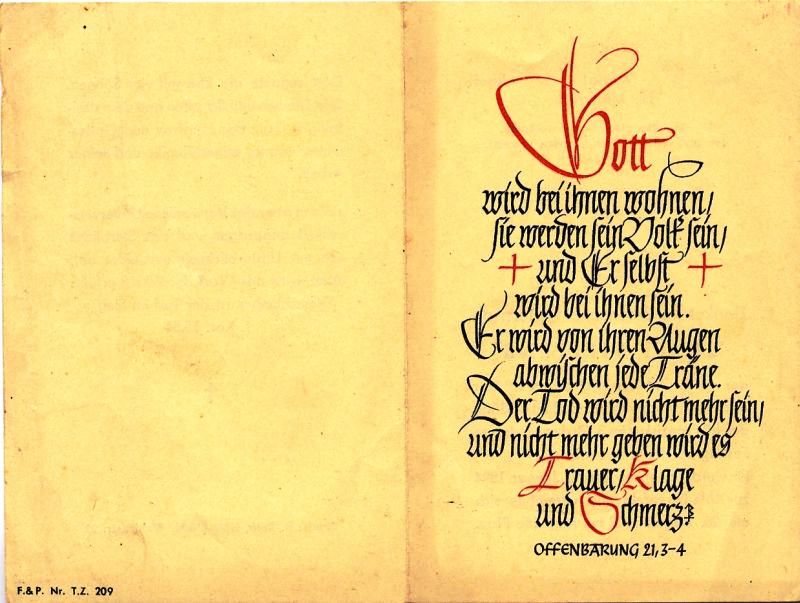 Gott
wird bei ihnen wohnen/
sie werden sein Volk sein/
+ und Er selbst +
wird bei ihnen sein.
Er wird von ihren Augen
abwischen jede Träne.
Der Tod wird nicht mehr sein/
und nicht mehr geben wird es
Trauer/Klage
und Schmerz
OFFENBARUNG 21,3-4
F.& P. Nr. T.Z. 209